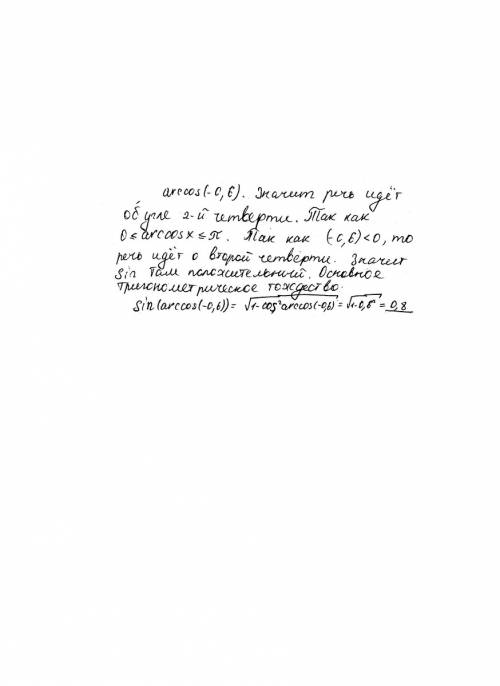 arccos(-0,6). Значит речь идёт
об угле 2-й четверти. Так как
0 ≤ arccos x ≤ π. Так как (-0,6)<0, то
речь идёт о второй четверти. Значит
Sin там положительный. Основное
тригонометрическое тождество.
Sin(arccos(-0,6)) = √1-cos² arccos(-0,6) = √1-0,6² = 0,8